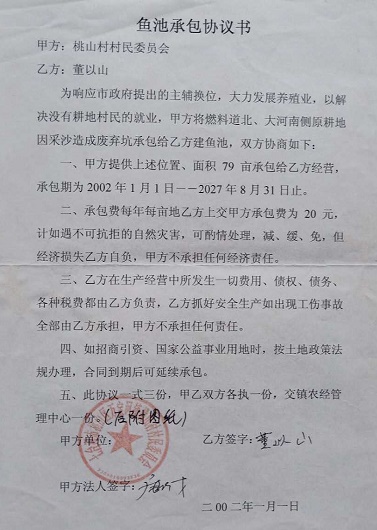 鱼池承包协议书
甲方：桃山村村民委员会
乙方：董以山
为响应市政府提出的主辅换位，大力发展养殖业，以解
决没有耕地村民的就业，甲方将燃料道北、大河南侧原耕地
因采沙造成废弃坑承包给乙方建鱼池，双方协商如下：
一、甲方提供上述位置、面积 79 亩承包给乙方经营，
承包期为 2002 年 1 月 1 日——2027 年 8 月 31 日止。
二、承包费每年每亩地乙方上交甲方承包费为 20 元，
计如遇不可抗拒的自然灾害，可酌情处理，减、缓、免，但
经济损失乙方自负，甲方不承担任何经济责任。
三、乙方在生产经营中所发生一切费用、债权、债务、
各种税费都由乙方负责，乙方抓好安全生产如出现工伤事故
全部由乙方承担，甲方不承担任何责任。
四、如招商引资、国家公益事业用地时，按土地政策法
规办理，合同到期后可延续承包。
五、此协议一式三份，甲乙双方各执一份，交镇农经管
理中心一份。（后附图纸）
甲方单位： 乙方签字：董以山
甲方法人签字：
二 00 二年一月一日